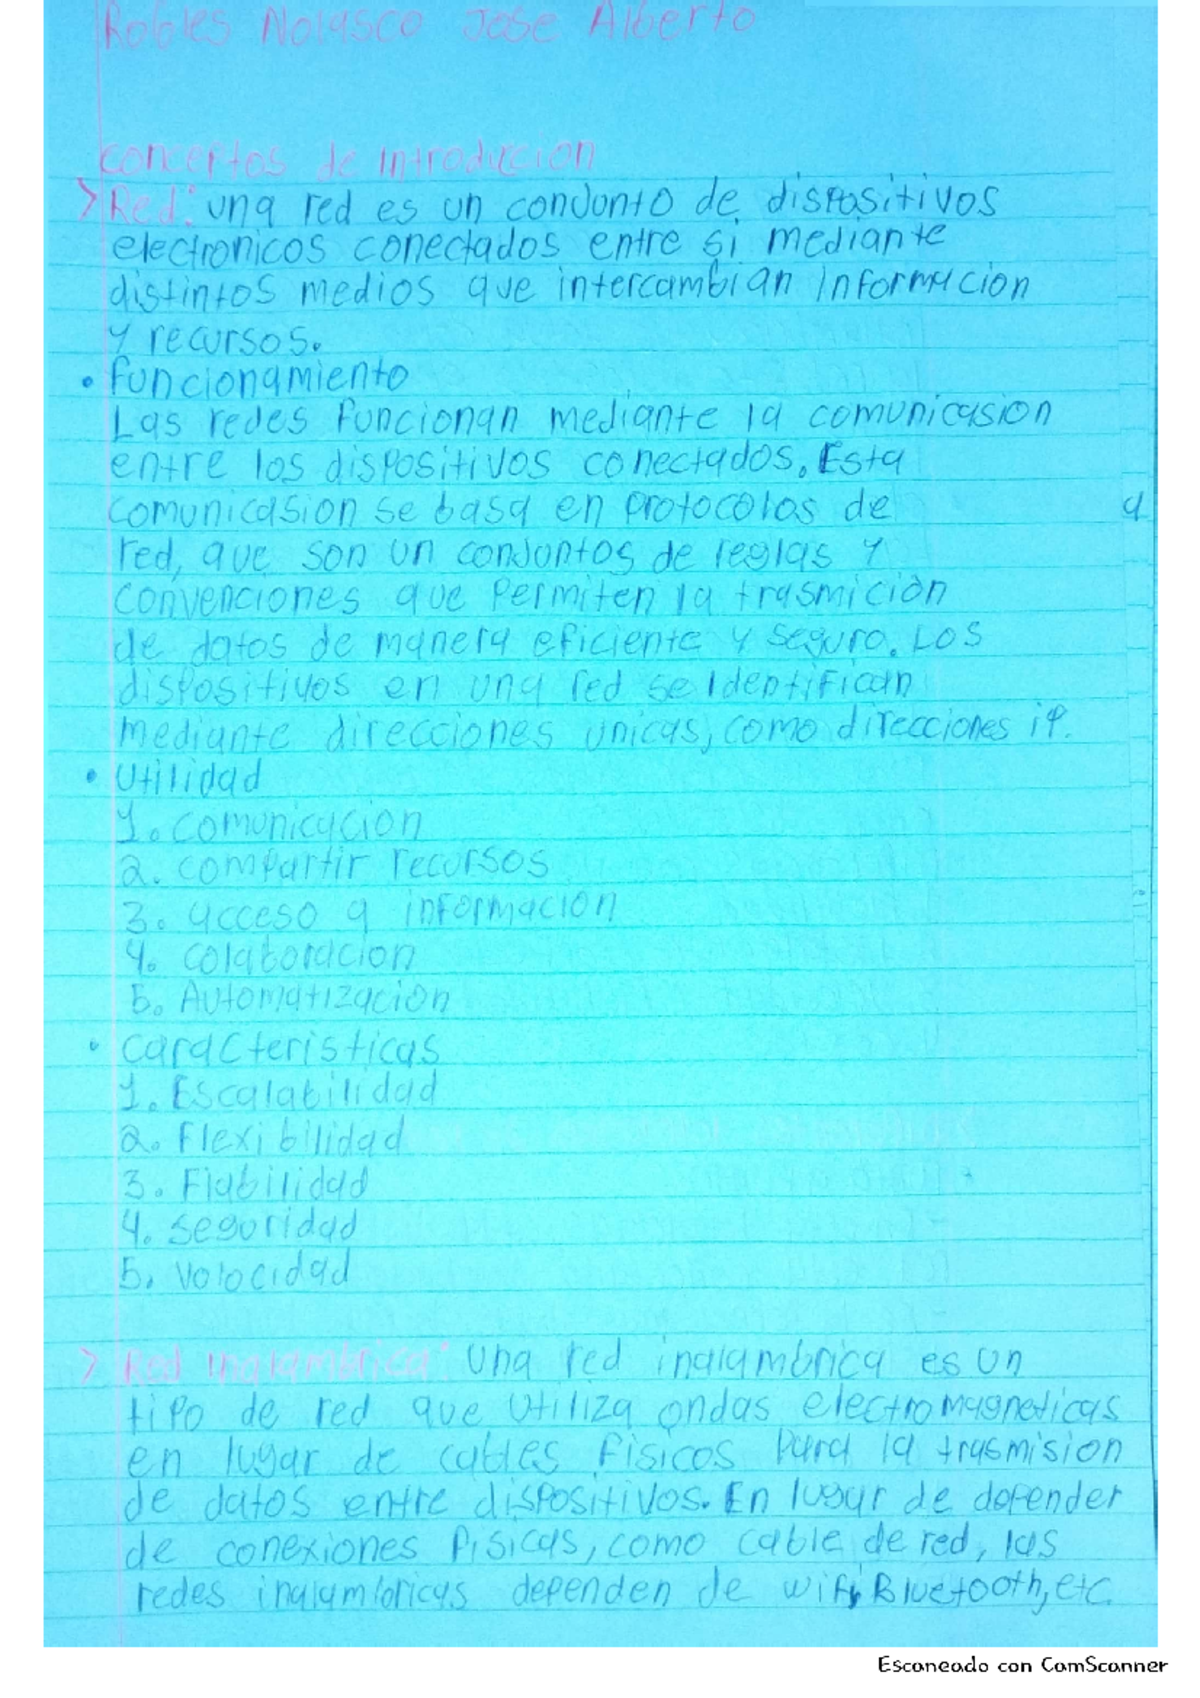 Robles Nolasco Jose Alberto
conceptos de introducion
> Red: una red es un conjunto de dispositivos
electronicos conectados entre si mediante
distintos medios que intercambian informacion
y recursos.
• funcionamiento
Las redes funcionan mediante la comunicasion
entre los dispositivos conectados. Esta
comunicasion se basa en protocolos de
red, que son un conjuntos de reglas y
convenciones que permiten la trasmición
de datos de manera eficiente y seguro. Los
dispositivos en una red se identifican
mediante direcciones unicas, como direcciones ip.
• Utilidad
1. comunicacion
2. compartir recursos
3. acceso a informacion
4. colaboracion
5. Automatización
• caracteristicas
1. Escalabilidad
2. Flexibilidad
3. Fiabilidad
4. seguridad
5. Volocidad
> Red inalambrica: Una red inalambrica es un
tipo de red que utiliza ondas electromagneticas
en lugar de cables fisicos para la trasmision
de datos entre dispositivos. En lugar de depender
de conexiones fisicas, como cable de red, las
redes inalambricas dependen de wifi, Bluetooth, etc.
Escaneado con CamScanner